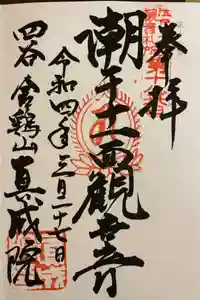 奉拝
潮干十一面觀世音
令和四年三月二十七日
四谷 金鶏山 真成院